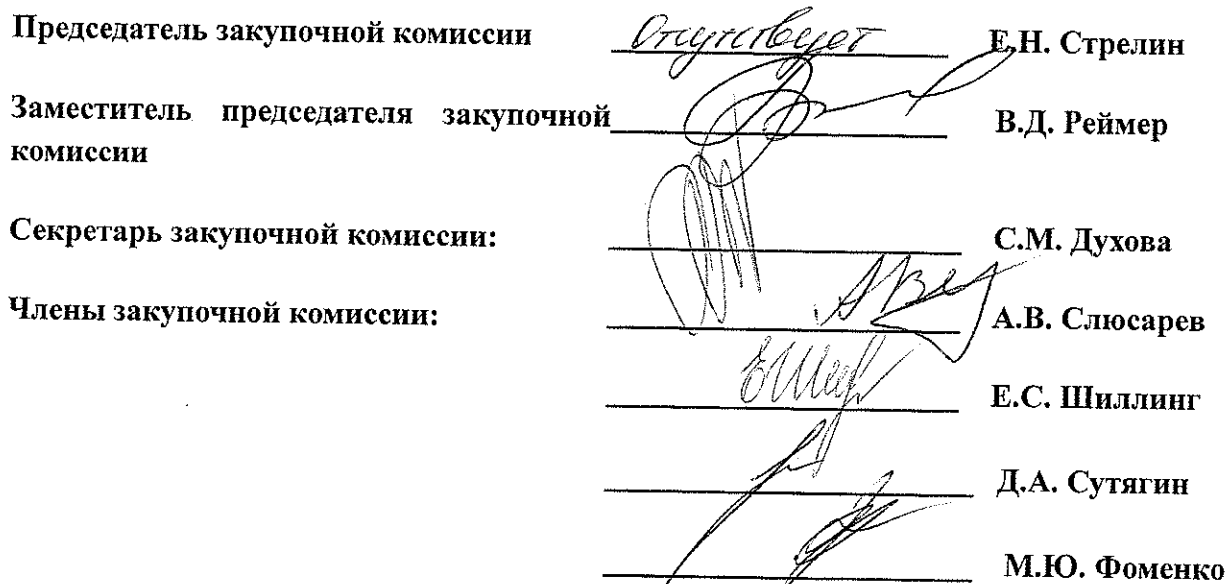 Председатель закупочной комиссии Отсутствует Е.Н. Стрелин
Заместитель председателя закупочной В.Д. Реймер
комиссии
Секретарь закупочной комиссии: С.М. Духова
Члены закупочной комиссии: А.В. Слюсарев
Е.С. Шиллинг
Д.А. Сутягин
М.Ю. Фоменко